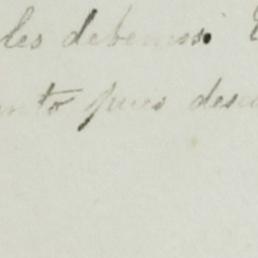 les debemos.
nto pues des